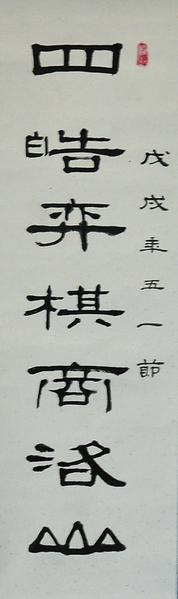 四皓弈棋商洛山
戊戌年五一節